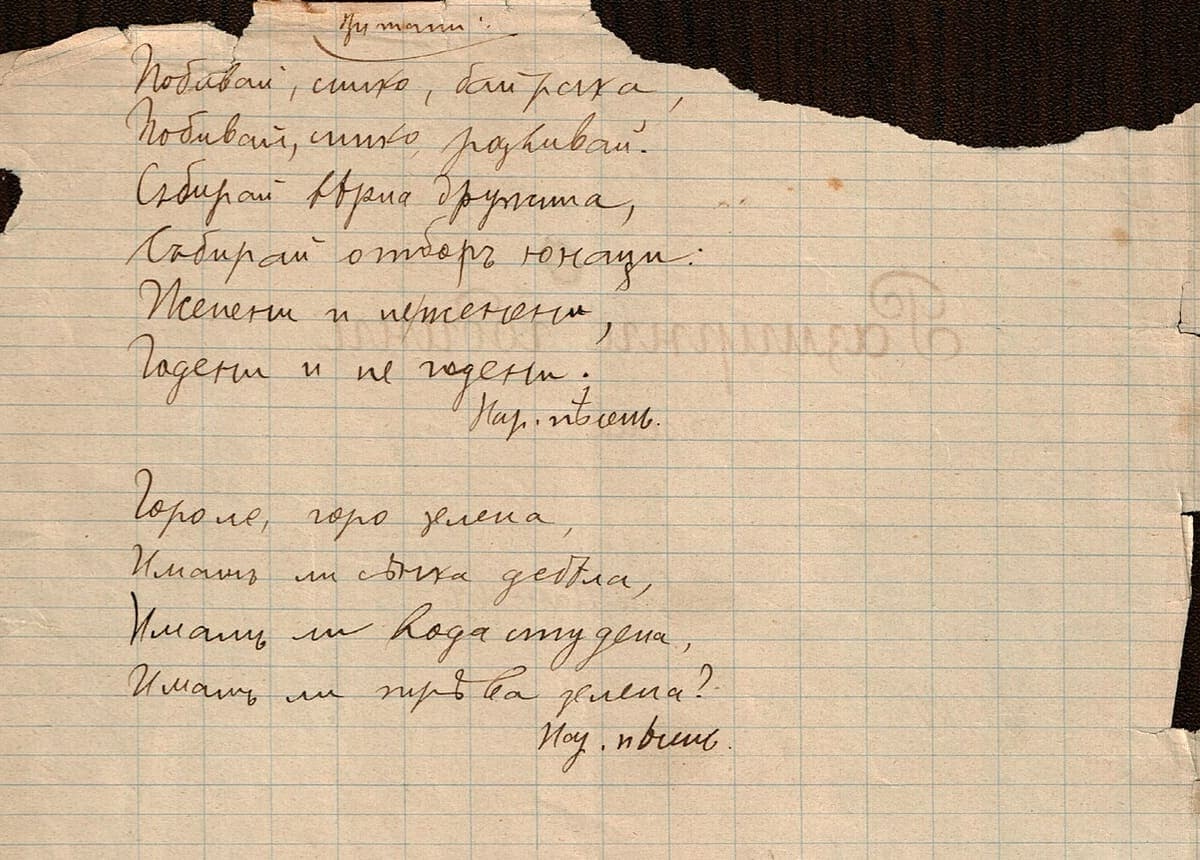 Цитати:
Побивай, синко, байряка,
Побивай, синко, развивай.
Събирай вѣрна дружина,
Събирай отборъ юнаци:
Женени и неженени,
Годени и не годени.
Нар. пѣсень.
Гороле, горо зелена,
Имашъ ли сѣнка дебѣла,
Имашъ ли вода студена,
Имашъ ли трѣва зелена?
Нар. пѣсень.